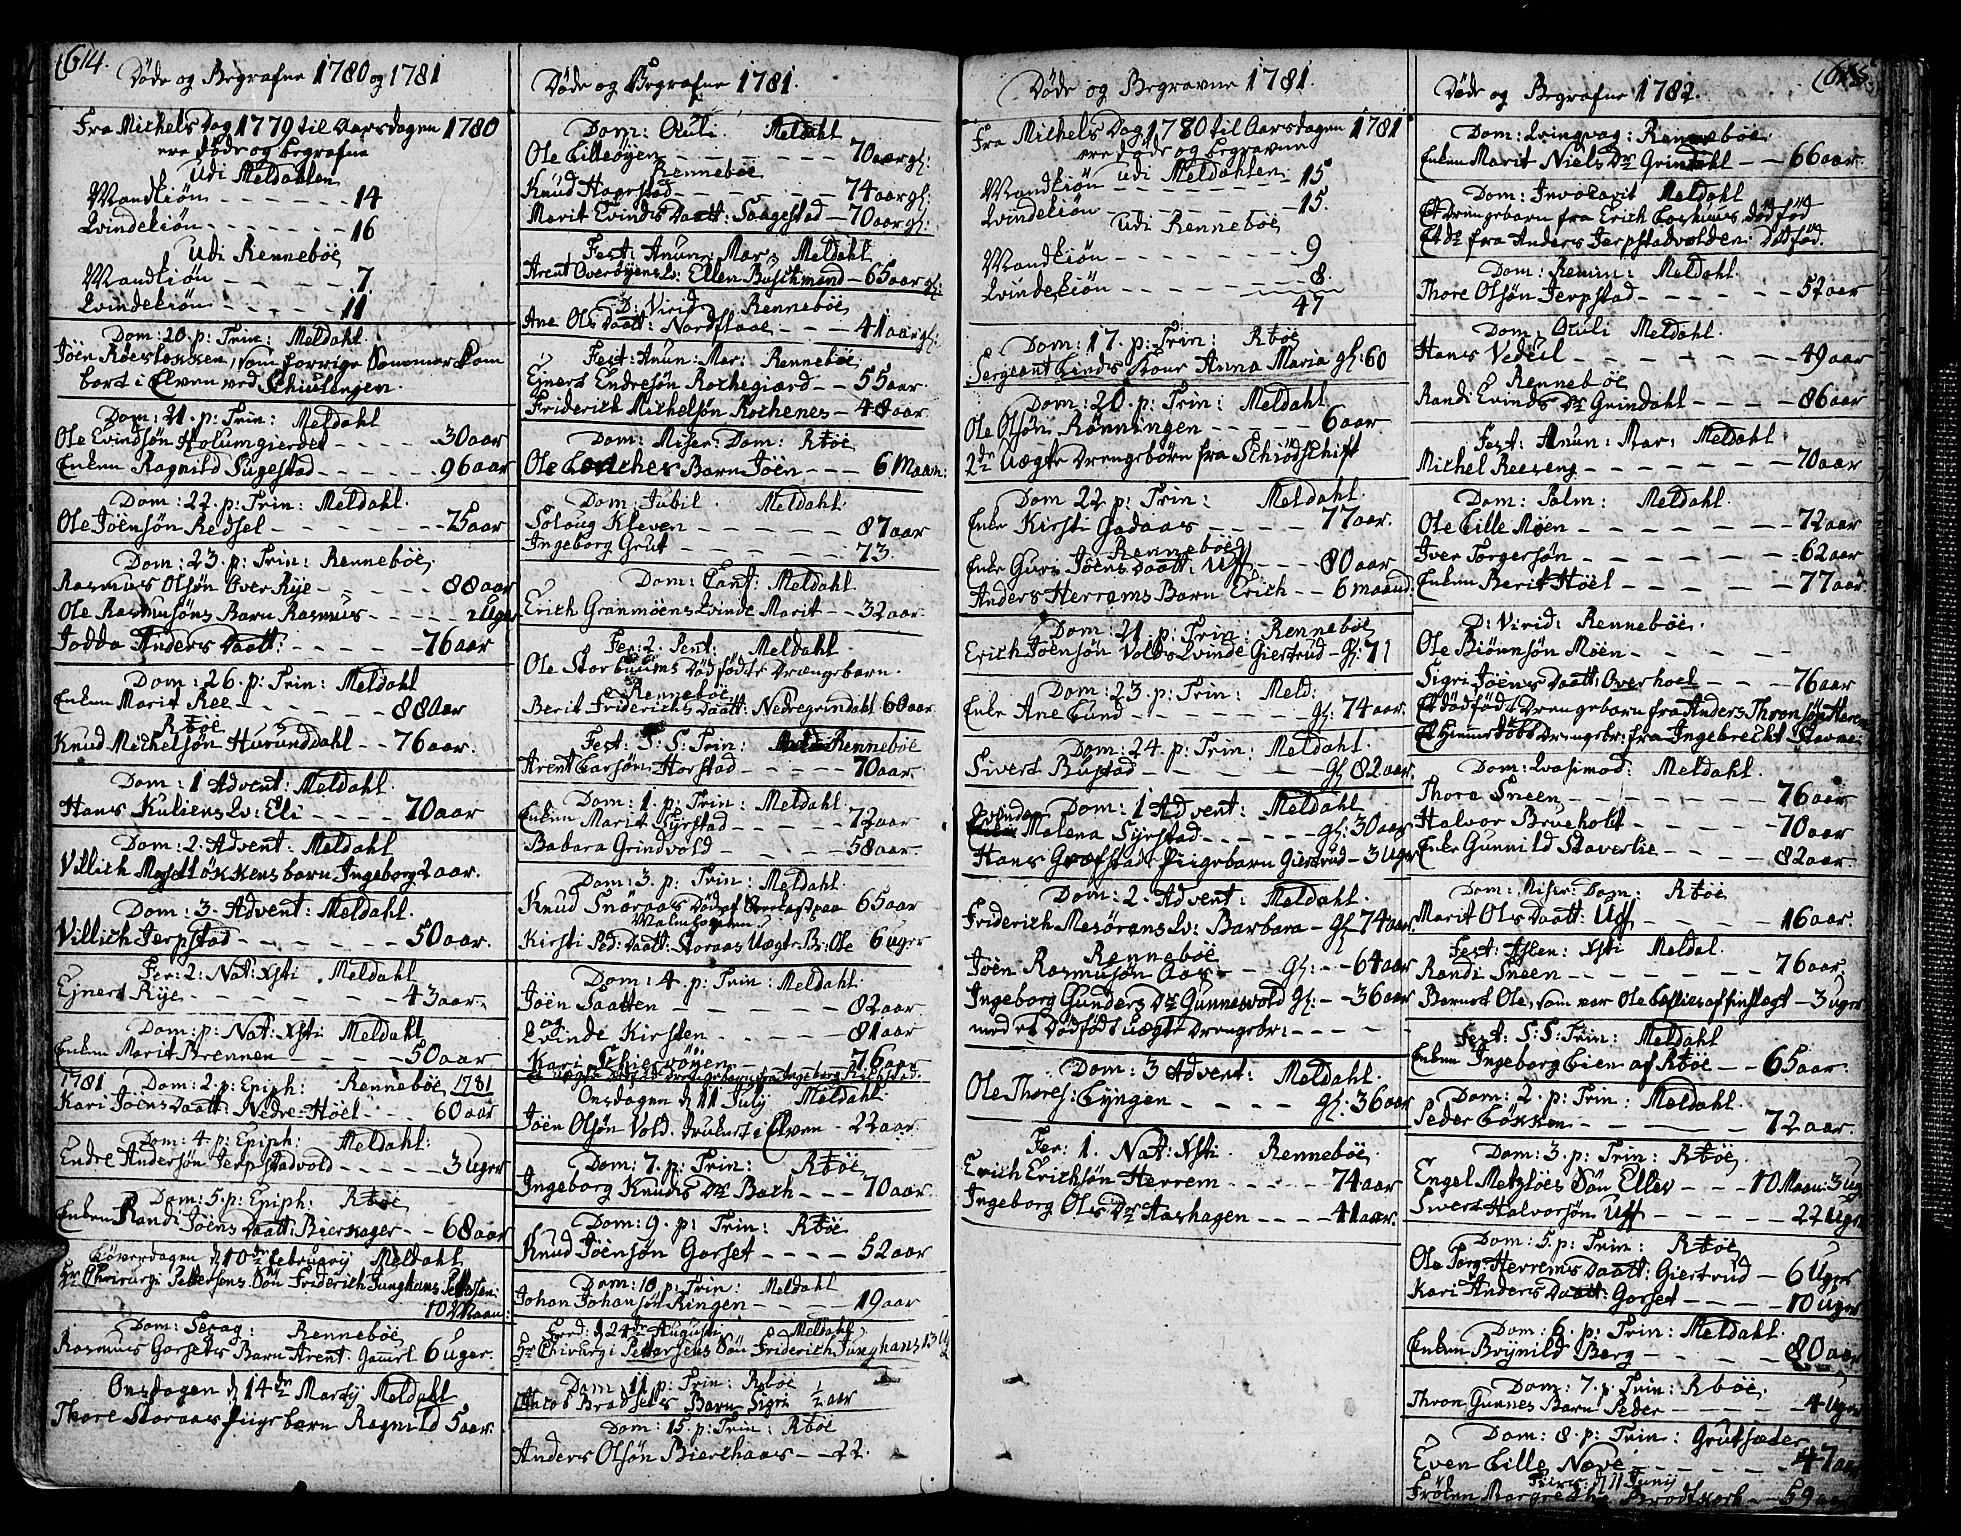 614.
Døde og Begrafne 1780 og 1781
Fra Michels Dag 1779 til Aarsdagen 1780
ere døde og begrafne
Udi Meldahlen
Mandkiøn - - - - - - 14
Qvindekiøn - - - - - - 16
Udi Rennebøe
Mandkiøn - - - - - 7.
Qvindekiøn - - - - - 11
Dom: 20. p: Trin: Meldahl.
Jöen som forrige Sommer kom
bort i Elven ved
Dom: 21. p: Trin: Meldahl
Ole Evindsøn Holumgierdet - - - - 30 aar
Enken Ragnild Sugestad - - - - 96 aar
Dom: 22. p: Trin: Meldahl.
Ole Jöensøn Redsel - - - - - 75 aar
Dom: 23. p: Trin: Rennebøe
Rasmus Olsøn Over Rye - - - - 88 aar
Ole Rasmusøns Barn Rasmus - - - - 2 Uger
Jodda Anders Daatt: - - - - - 76 aar
Dom: 26. p: Trin: Meldahl
Enken Marit Ree - - - - - 88 aar
Rbøe
Knud Michelsøn Hurunddahl - - 76 aar.
Dom: 1 Advent: Meldahl.
Hans Kuliens Qv: Eli - - - - 70 aar
Dom: 2. Advent: Meldahl
Villich barn Ingeborg 2 aar.
Dom: 3. Advent: Meldahl.
Villich Jerpstad - - - - - 50 aar.
Fer: 2: Nat: Xsti. Meldahl
Ejnert Rye - - - - - - - 43 aar.
Dom: p: Nat: Xsti Meldahl
Enken Marit Brennen - - - - - 50 aar
1781 Dom: 2. p: Epiph: Rennebøe 1781
Kari Jöens Daatt: Nedre-Höel - - - 60 aar
Dom: 4. p: Epiph: Meldahl:
Endre Andersøn Jerpstadvold - - - - - 3 Uger
Dom: 5. p: Epiph: Rbøe
Enken Randi Jöens Daatt: Bierkager - - 68 aar
Löverdagen d 10de February Meldahl
Hr Chirurgi Petersens Søn Friderich Junghans Petersen:
10 Maan:
Dom: Sexag: Rennebøe
Rasmus Gorsets Barn Arent. Gaml 6 uger.
Onsdagen d 14de Martij Meldahl
Thore Storaas Pigebarn Ragnild 5 aar.
Døde og Begrafne 1781.
Dom: Oculi. Meldahl
Ole Lilleøyen - - - - - 70 aar gl:
Rennebøe
Knud Hagestad - - - - - 74 aar gl:
Marit Evinds Daatt: Saagestad - 70 aar gl:
Fest: Anun: Mar: Meldahl
Arent Overøyens Qv: Ellen Buschmand - 65 aar gl:
D: Virid: Rennebøe
Ane Ols Daatt: Nordstaae - - - 41 aar gl:
Fest: Anun: Mar: Rennebøe
Ejnert Endresøn Rochegiærd - - 55 aar.
Friderich Michelsøn Rochenes - 48 aar.
Dom: Miser: Dom: Rbøe
Ole Barn Jöen - - - 6 Maan:
Dom: Jubil. Meldahl.
Soloug Kleven - - - - - 87 aar
Ingeborg Grut - - - - - 73.
Dom: Cant: Meldahl.
Erich Granmöens Qvinde Marit - - 32 aar.
Fer: 2. Pent: Meldahl
Ole Storbuums Dødfödte Drengebarn.
Rennebøe
Berit Friderichs Daatt: Nedregrindahl 60 aar
Fest: S: S: Trin: Rennebøe
Arent Larsøn Horstad - - - - 70 aar.
Dom: 1. p: Trin: Meldahl
Enken Marit Syrstad - - - - 72 aar
Babara Grindvold - - - - - 58 aar.
Dom: 3. p: Trin: Meldahl.
Knud Snöraas Död af paa 65 aar
Kirsti Ped: Daatt: Storaas Uægte Br: Ole 6 uger
Dom: 4. p: Trin: Meldahl
Jöen Saatten - - - - - 82 aar
Qvinde Kirsten - - - - - 81 aar
Kari Schierøyen - - - - 76 aar
Onsdagen d 11 July Meldahl.
Jöen Olsøn Vold. Druknet i Elven - 22 aar.
Dom: 7. p: Trin: Rbøe
Ingeborg Knuds Dr Bach - - - 70 aar.
Dom: 9. p: Trin: Rbøe
Knud Jöensøn Gorset - - - - 52 aar
Dom: 10. p: Trin: Meldahl
Johan Johansøn Ringen - - - - 19 aar
d 24de Augusti Meldahl
Hr Chirurgi Petersens Søn Friderich Junghans 13 Ug
Dom: 11 p: Trin: Rbøe
Jacob Bradsets Barn Sigri ½ aar
Dom: 15. p: Trin: Rbøe
Anders Olsøn Bierchaas - - 22.
Døde og Begravne 1781.
Fra Michels Dag 1780 til Aarsdagen 1781
ere døde og begravne
Udi Meldahlen
Mandkiøn - - - - - - 15
Qvindekiøn - - - - - - 15.
Udi Rennebøe
Mandkiøn - - - - - - 9
Qvindekiøn - - - - - - 8.
47
Dom: 17. p: Trin: Rbøe
Sergeant Linds Kone Anna Maria gl: 60
Dom: 20. p: Trin: Meldahl.
Ole Olsøn Rønningen - - - - 6 aar
2de Uægte Drengebørn fra Schrödschift
Dom 22 p: Trin: Meldahl.
Enke Kirsti Gadaas - - - - 77 aar.
Rennebøe
Enke Guri Jöens Daatt: Uff - - - 80 aar
Anders Herrems Barn Erich - - 6 maand:
Dom: 21. p: Trin: Rennebøe
Erich Jöensøn Volds Qvinde Giertrud - Gl: 71
Dom: 23. p: Trin: Meld:
Enke Ane Lund - - - - - - gl: 74 aar.
Dom: 24. p: Trin: Meldahl.
Sivert Bustad - - - - - - Gl 82 aar.
Dom: 1 Advent: Meldahl
Qvinden Malena Syrstad - - - - gl: 30 aar
Hans Græfstads Piigebarn Giertrud - 3 uger
Dom: 2. Advent: Meldahl.
Friderich Mesörens Qv: Barbara - Gl 74 aar.
Rennebøe
Jöen Rasmusøn Aas - - Gl: - - 64 aar
Ingeborg Gunders Dr Gunnesvold Gl: - - 36 aar
med et Dødfödt uægte Drengebr: - - - -
Dom: 3 Advent: Meldahl.
Ole Thores: Lyngen - - - - gl: 36 aar
Fer: 1. Nat: Xsti. Rennebøe
Erich Erichsøn Herrem - - - - 74 aar
Ingeborg Ols Dr Hashagen - - - - 41 aar.
Døde og Begrafne 1782.
Dom: Qvinqvag: Rennebøe
Enken Marit Niels Dr Grindahl - - 66 aar.
Dom: Invocavit Meldahl
Et Drengebarn fra Erich dødföd
Et dr fra Anders Jerpstadvolden: Dödföd.
Dom: Remin: Meldahl.
Thore Olsøn Jerpstad - - - - - 52 aar
Dom: Oculi Meldahl.
Hans Vedeil - - - - - - - 49 aar
Rennebøe
Randi Evinds Dr Grindahl - - - - 86 aar
Fest: Anun: Mar: Meldahl.
Michel Reeseng - - - - - - 70 aar
Dom: Palm: Meldahl:
Ole Lille Möen - - - - - - 72 aar
Iver Torgersøn - - - - - - 62 aar
Enken Berit Höel - - - - - 77 aar
D: Virid: Rennebøe.
Ole Biönnsøn Möen - - - - -
Sigri Jöens Daatt: Overhoel - - - - 76 aar
Et dödfödt Drengebarn fra Anders Thronsøn Herrem
Et Hiemedöbt Drengebr: fra Ingebrecht Stavne
Dom: Qvasimod: Meldahl.
Thora Sneen - - - - - - 76 aar
Halvor Brueholt - - - - - 70 aar
Enke Gunnild Staverlie - - - - 82 aar.
Dom: Miser: Dom: Rbøe
Marit Ols Daatt: Uff - - - - - 16 aar
Fest: Assen: Xsti Meldal.
Randi Sneen - - - - - - 76 aar
Barnet Ole, som var Ole af sinslagt - 3 uger
Fest: S: S: Trin: Meldahl
Enken Ingeborg Lien af Rbøe - - 65 aar.
Dom: 2. p: Trin: Meldahl.
Peder Løkken - - - - - 72 aar.
Dom: 3. p: Trin: Rbøe
Engel Metzløes Søn Ellev - - - 10 Maan: 3 ug
Sivert Halvorsøn Uff - - - - - 22 Uger
Dom: 5. p: Trin: Rbøe
Ole Torg: Herrems Daatt: Giertrud - 6 Uger
Kari Anders Daatt: Gorset - - - - 10 uger
Dom: 6. p: Trin: Meldahl.
Enken Brynild Berg - - - - - - 80 aar
Dom: 7. p: Trin: Rbøe.
Thron Gunnes Barn Peder - - - - 4 Uger
Dom: 8. p: Trin: Grutsæder
Even Lille Neve - - - - - - 47 aar
d 11 Junij
Frøken Margrethe Brodtkorb - - 59 aar